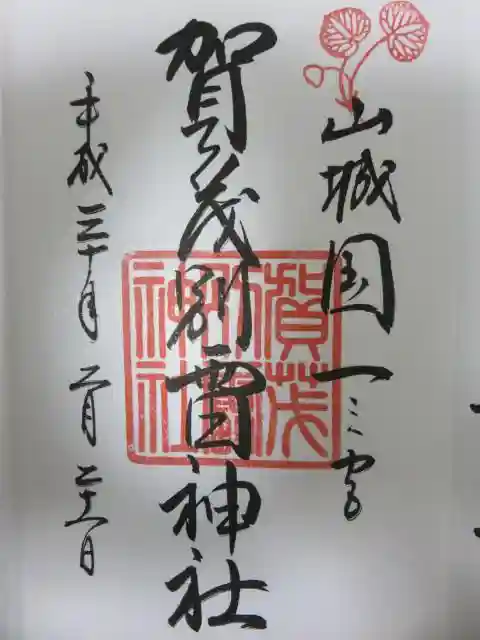 山城国一ノ宮
賀茂別雷神社
賀茂別雷神社
平成三十年二月二十八日